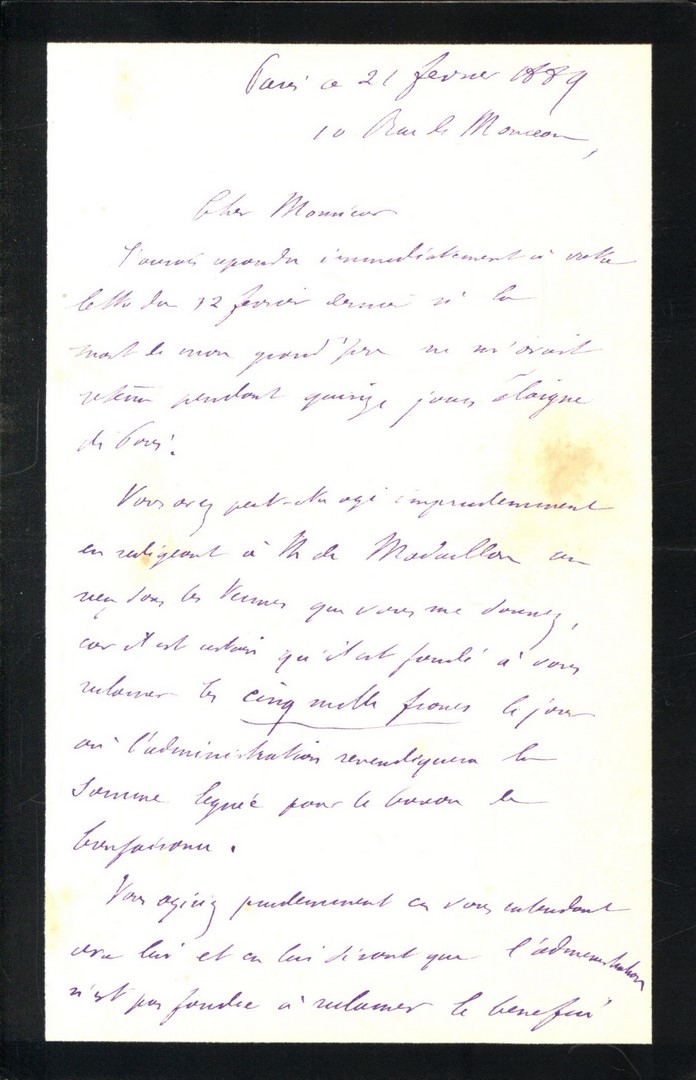 Paris ce 21 fevrier 1889
10 Rue de Monceau,
Cher Monsieur
J'aurais repondu immediatement à votre
lettre du 12 fevrier dernier si la
mort de mon grand'père ne m'avait
retenu pendant quinze jours éloigné
de Paris.
Vous avez peut-etre agi imprudemment
en redigeant à Mr de Madaillan un
reçu dans les termes que vous me donnez,
car il est certain qu'il est fondé à vous
reclamer les cinq mille francs le jour
où l'administration revendiquera la
somme leguée par le baron de
Vous agirez prudemment en vous entendant
avec lui et en lui disant que l'administration
n'est pas fondée à reclamer le benefice